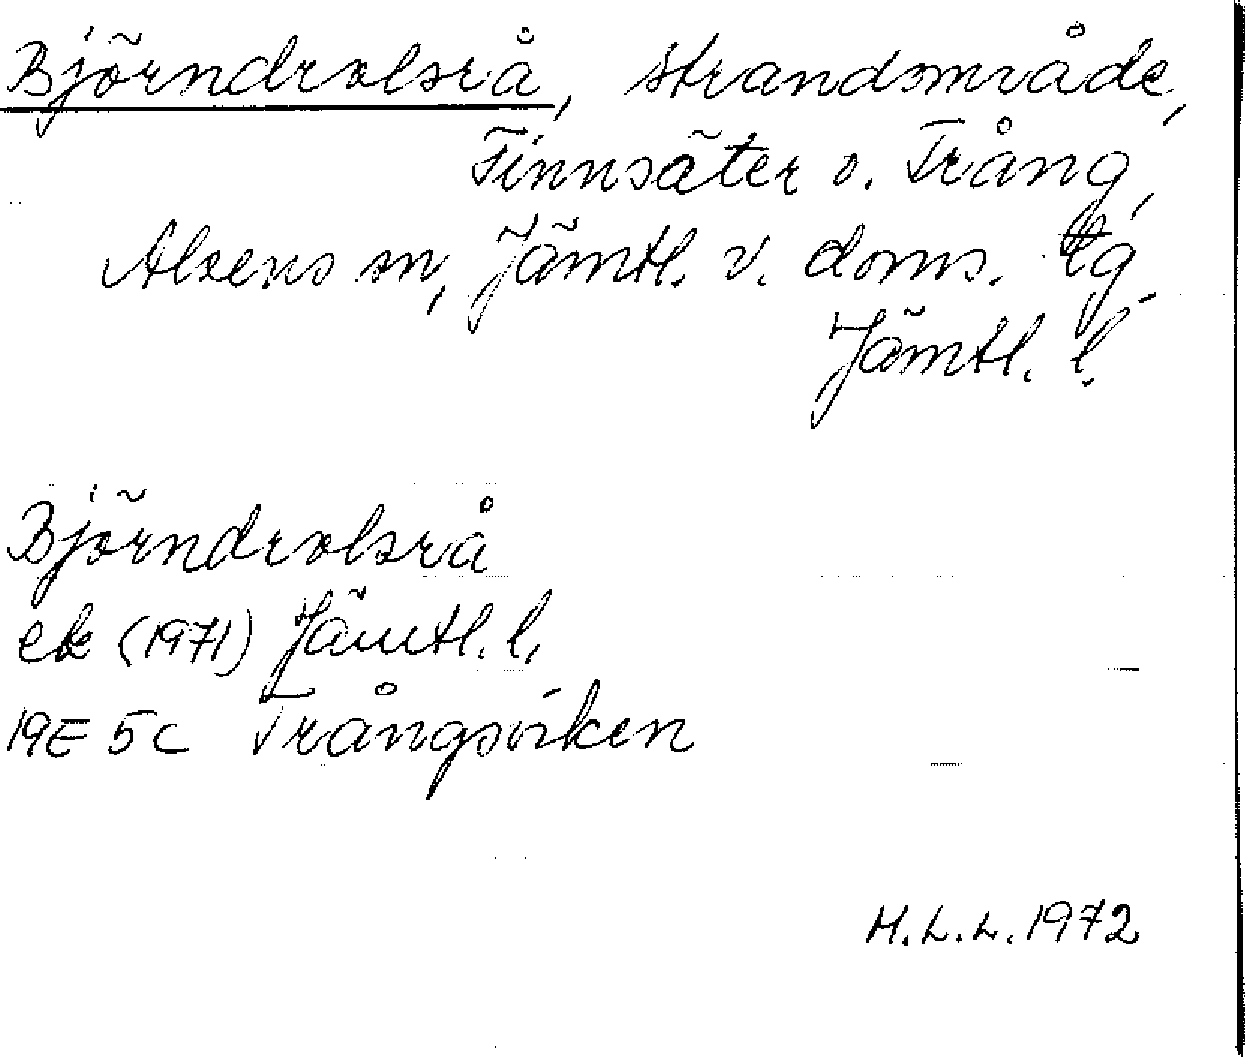 Björndrolsrå, strandområde,
Finnsäter o. Trång,
Alsens sn, Jämtl. v. doms. tg
Jämtl. l.
Björndrolsrå
ek (1971) Jämtl. l.
19E 5c Trångsviken
M.L.L. 1972